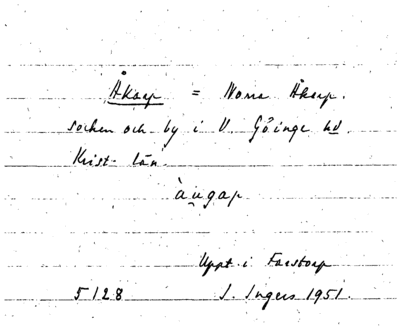 Åkarp = Norra Åkarp.
socken och by i V. Göinge hd.
Krist. län.
àu̯gap
Uppt. i Farstorp
5128 I. Ingers 1951.